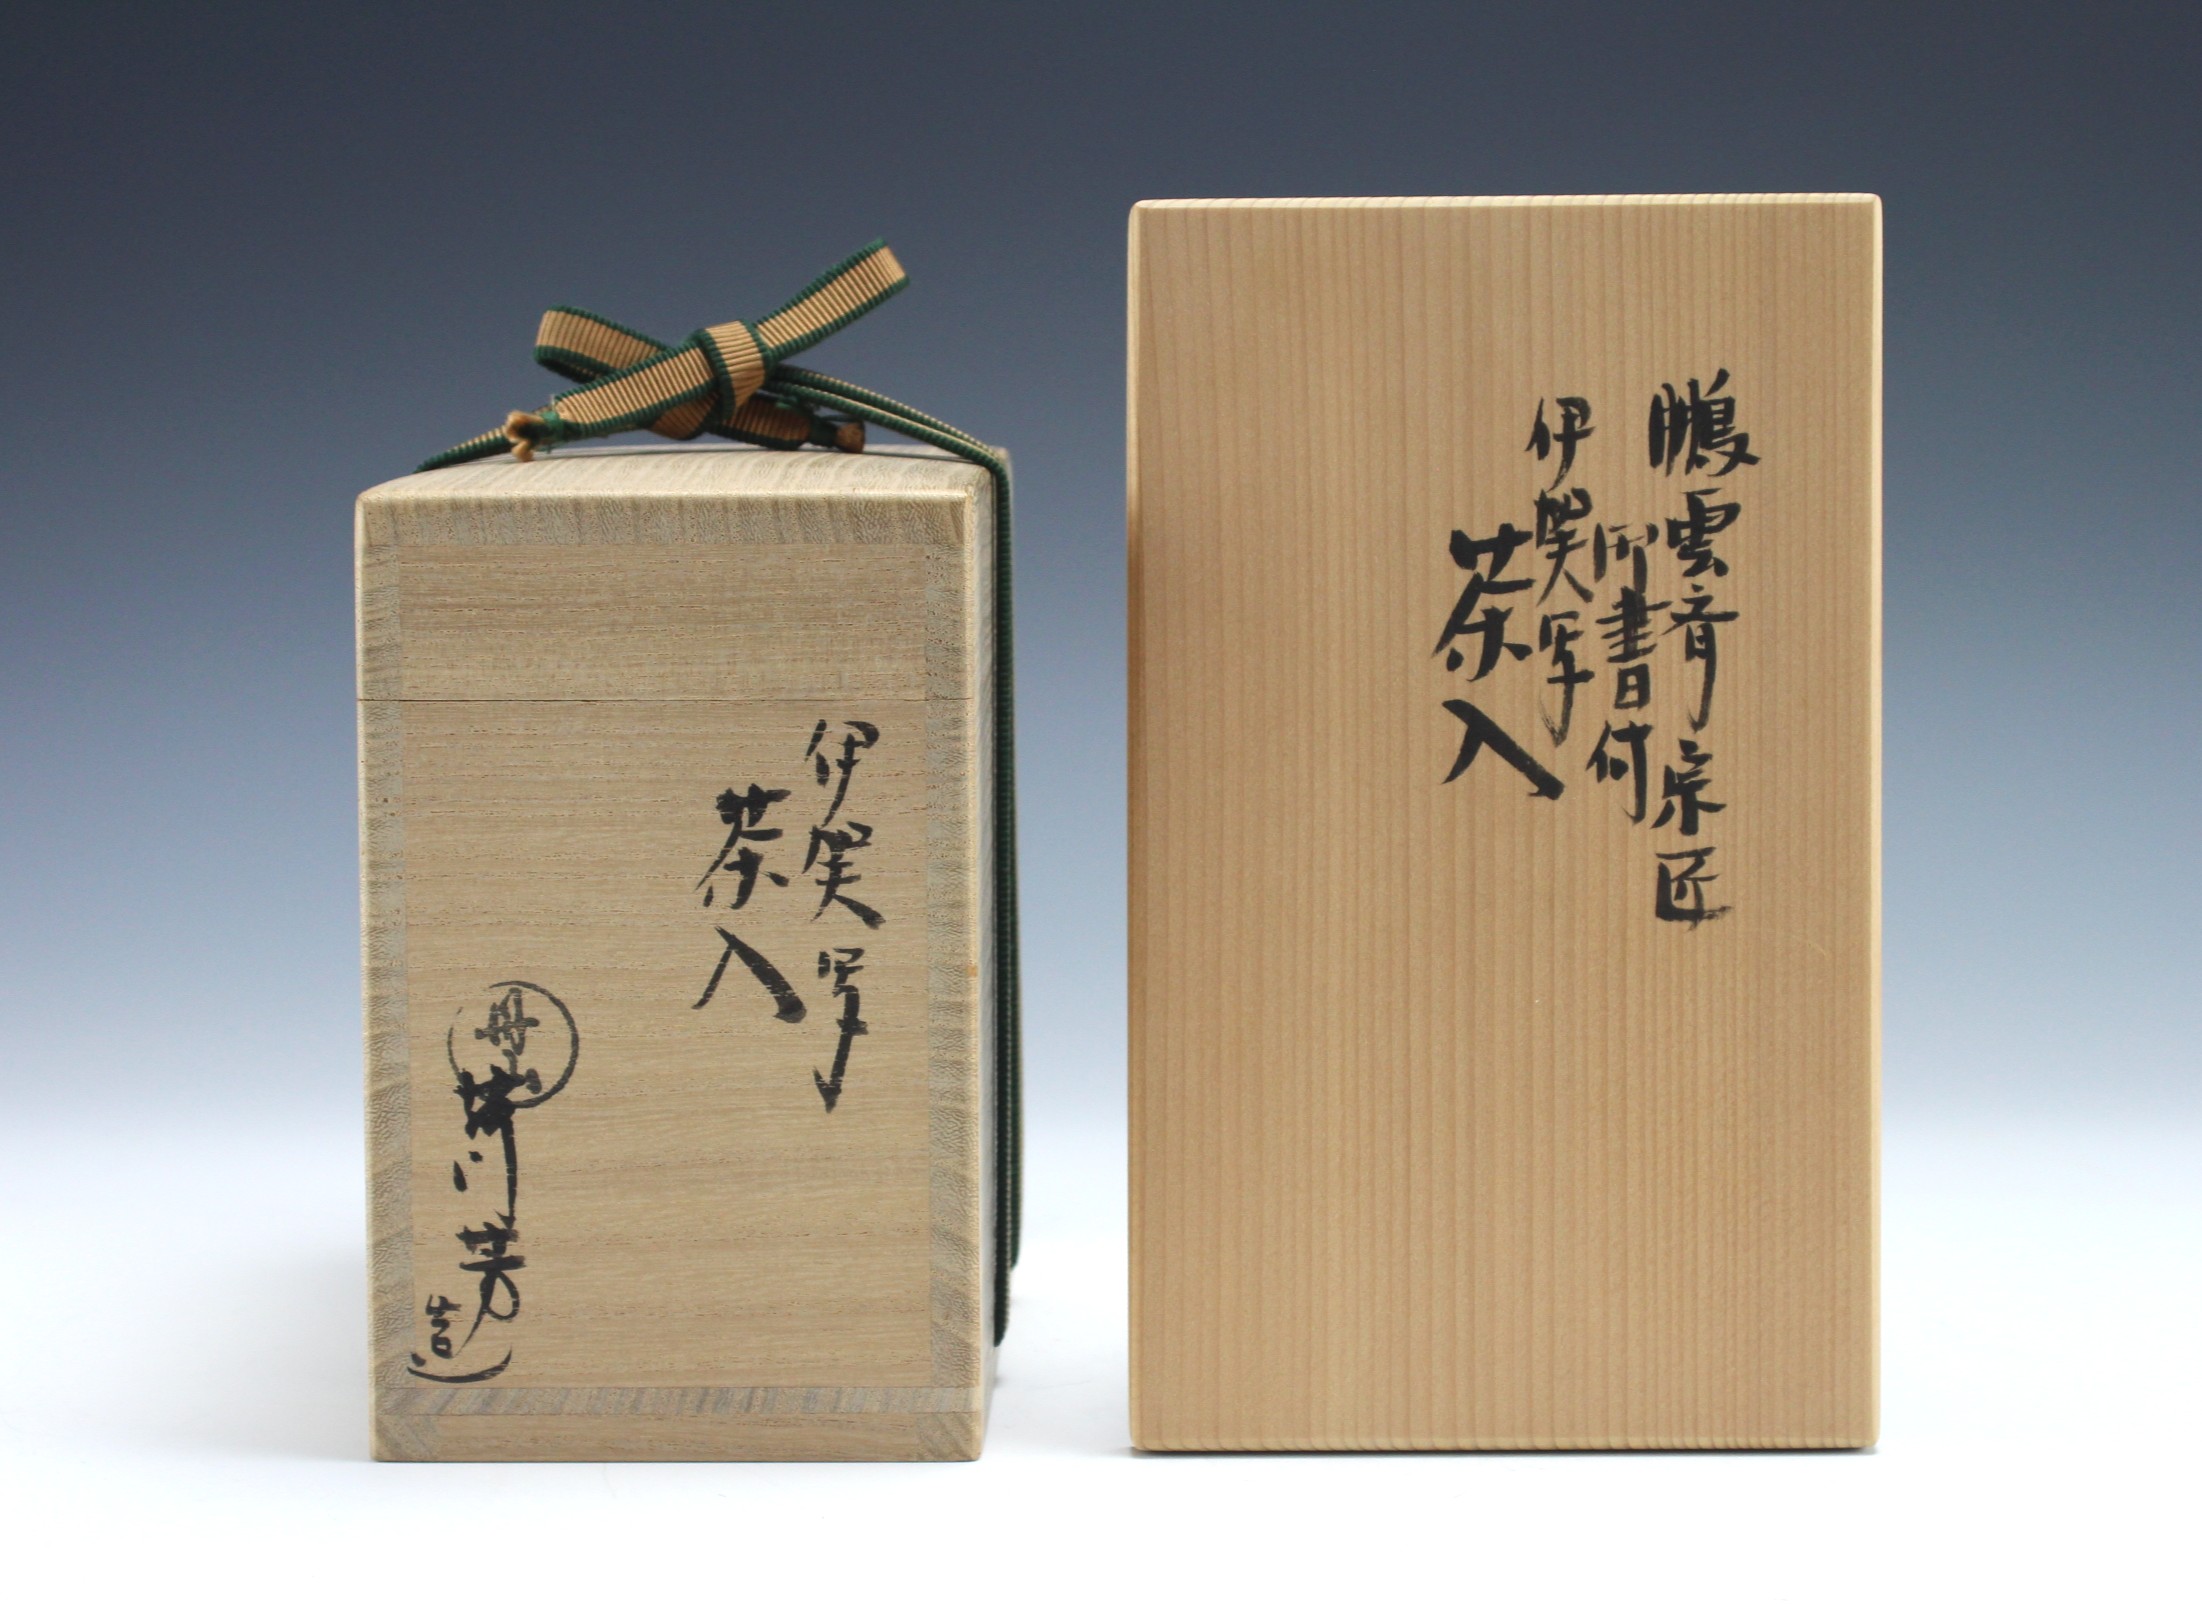 伊賀写
茶入
造
鵬雲斎宗匠
御書付
伊賀写
茶入